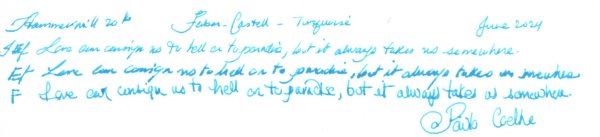 Hammermill 20 lb Faber-Castell - Turquoise June 2024
Love can consign us to hell or to paradise, but it always takes us somewhere.
EF Love can consign us to hell or to paradise, but it always takes us somewhere
F Love can consign us to hell or to paradise, but it always takes us somewhere.
@Paulo Coelho